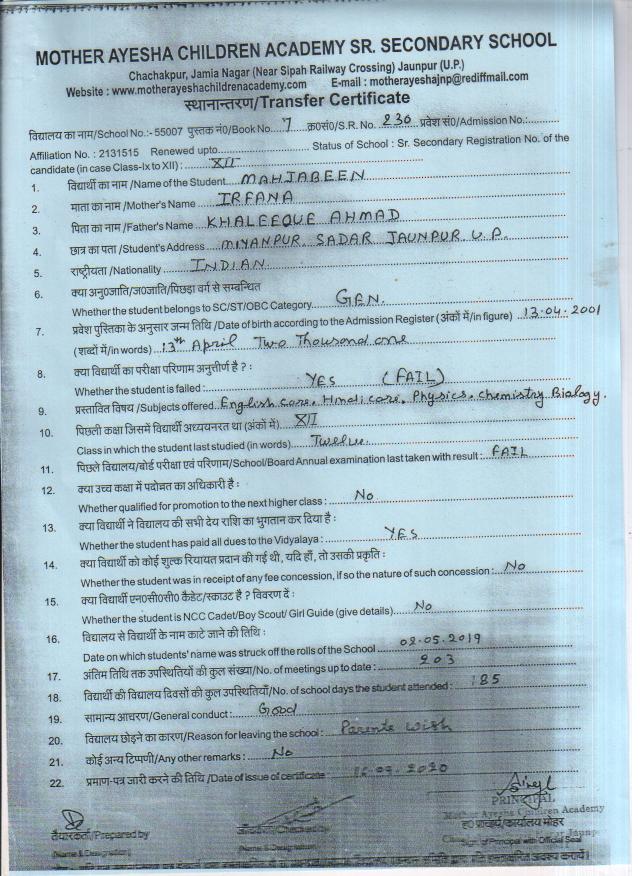 MOTHER AYESHA CHILDREN ACADEMY SR. SECONDARY SCHOOL
Chachakpur, Jamia Nagar (Near Sipah Railway Crossing) Jaunpur (U.P.)
Website : www.motherayeshachildrenacademy.com E-mail : motherayeshajnp@rediffmail.com
स्थानान्तरण/Transfer Certificate
विद्यालय का नाम/School No.:- 55007 पुस्तक नं0/Book No. 7 क्र0सं0/S.R. No. 236 प्रवेश सं0/Admission No.:
Affiliation No. : 2131515 Renewed upto Status of School : Sr. Secondary Registration No. of the
candidate (in case Class-Ix to XII) : XII
1. विद्यार्थी का नाम /Name of the Student MAHJABEEN
2. माता का नाम /Mother's Name IRFANA
3. पिता का नाम /Father's Name KHALEEQUE AHMAD
4. छात्र का पता /Student's Address MIYANPUR, SADAR JAUNPUR U.P.
5. राष्ट्रीयता /Nationality INDIAN
6. क्या अनु0जाति/ज0जाति/पिछड़ा वर्ग से सम्बन्धित
Whether the student belongs to SC/ST/OBC Category GEN.
7. प्रवेश पुस्तिका के अनुसार जन्म तिथि /Date of birth according to the Admission Register (अंकों में/in figure) 13-04-2001
(शब्दों में/in words) 13th April Two Thousand one
8. क्या विद्यार्थी का परीक्षा परिणाम अनुत्तीर्ण है ? :
Whether the student is failed : YES (FAIL)
9. प्रस्तावित विषय /Subjects offered English core, Hindi core, Physics, chemistry Biology.
10. पिछली कक्षा जिसमें विद्यार्थी अध्ययनरत था (अंकों में) XII
Class in which the student last studied (in words) Twelve
11. पिछले विद्यालय/बोर्ड परीक्षा एवं परिणाम/School/Board Annual examination last taken with result : FAIL
12. क्या उच्च कक्षा में पदोन्नत का अधिकारी है :
Whether qualified for promotion to the next higher class : No
13. क्या विद्यार्थी ने विद्यालय की सभी देय राशि का भुगतान कर दिया है :
Whether the student has paid all dues to the Vidyalaya : YES
14. क्या विद्यार्थी को कोई शुल्क रियायत प्रदान की गई थी, यदि हाँ, तो उसकी प्रकृति :
Whether the student was in receipt of any fee concession, if so the nature of such concession : No
15. क्या विद्यार्थी एन0सी0सी0 कैडेट/स्काउट है ? विवरण दें :
Whether the student is NCC Cadet/Boy Scout/ Girl Guide (give details) No
16. विद्यालय से विद्यार्थी के नाम काटे जाने की तिथि :
Date on which students' name was struck off the rolls of the School 02-05-2019
17. अंतिम तिथि तक उपस्थितियों की कुल संख्या/No. of meetings up to date : 203
18. विद्यार्थी की विद्यालय दिवसों की कुल उपस्थितियाँ/No. of school days the student attended : 185
19. सामान्य आचरण/General conduct : Good
20. विद्यालय छोड़ने का कारण/Reason for leaving the school : Parents wish
21. कोई अन्य टिप्पणी/Any other remarks : No
22. प्रमाण-पत्र जारी करने की तिथि /Date of issue of certificate
PRINCIPAL
Mother Ayesha Children Academy
ह0 प्राचार्य/कार्यालय मोहर
Sign. of Principal with Official Seal
तैयारकर्ता/Prepared by
(Name & Designation)